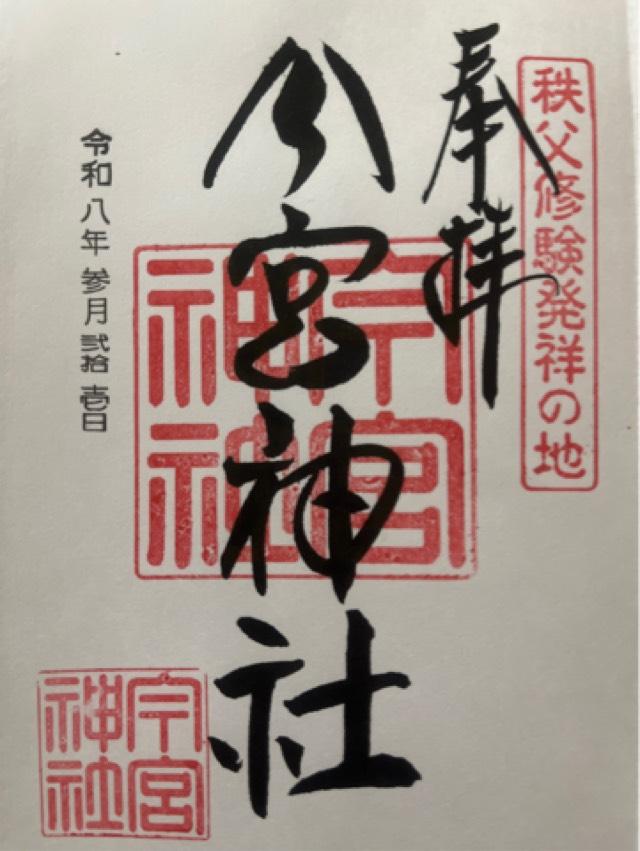 秩父修験発祥の地
奉拝
今宮神社
今宮神社
令和八年 参月 弐拾 壱日
今宮神社